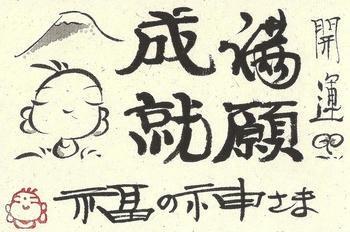 開運
満願
成就
福の神さま